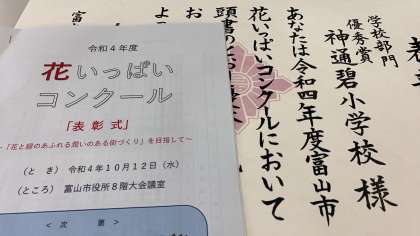 令和4年度
花いっぱい
コンクール
「表彰式」
~「花と緑のあふれる潤いのある街づくり」を目指して~
(とき) 令和4年10月12日(水)
(ところ) 富山市役所8階大会議室
<次第>
学校部門
優秀賞
神通碧小学校 様
あなたは令和四年度富山市
花いっぱいコンクールにおいて